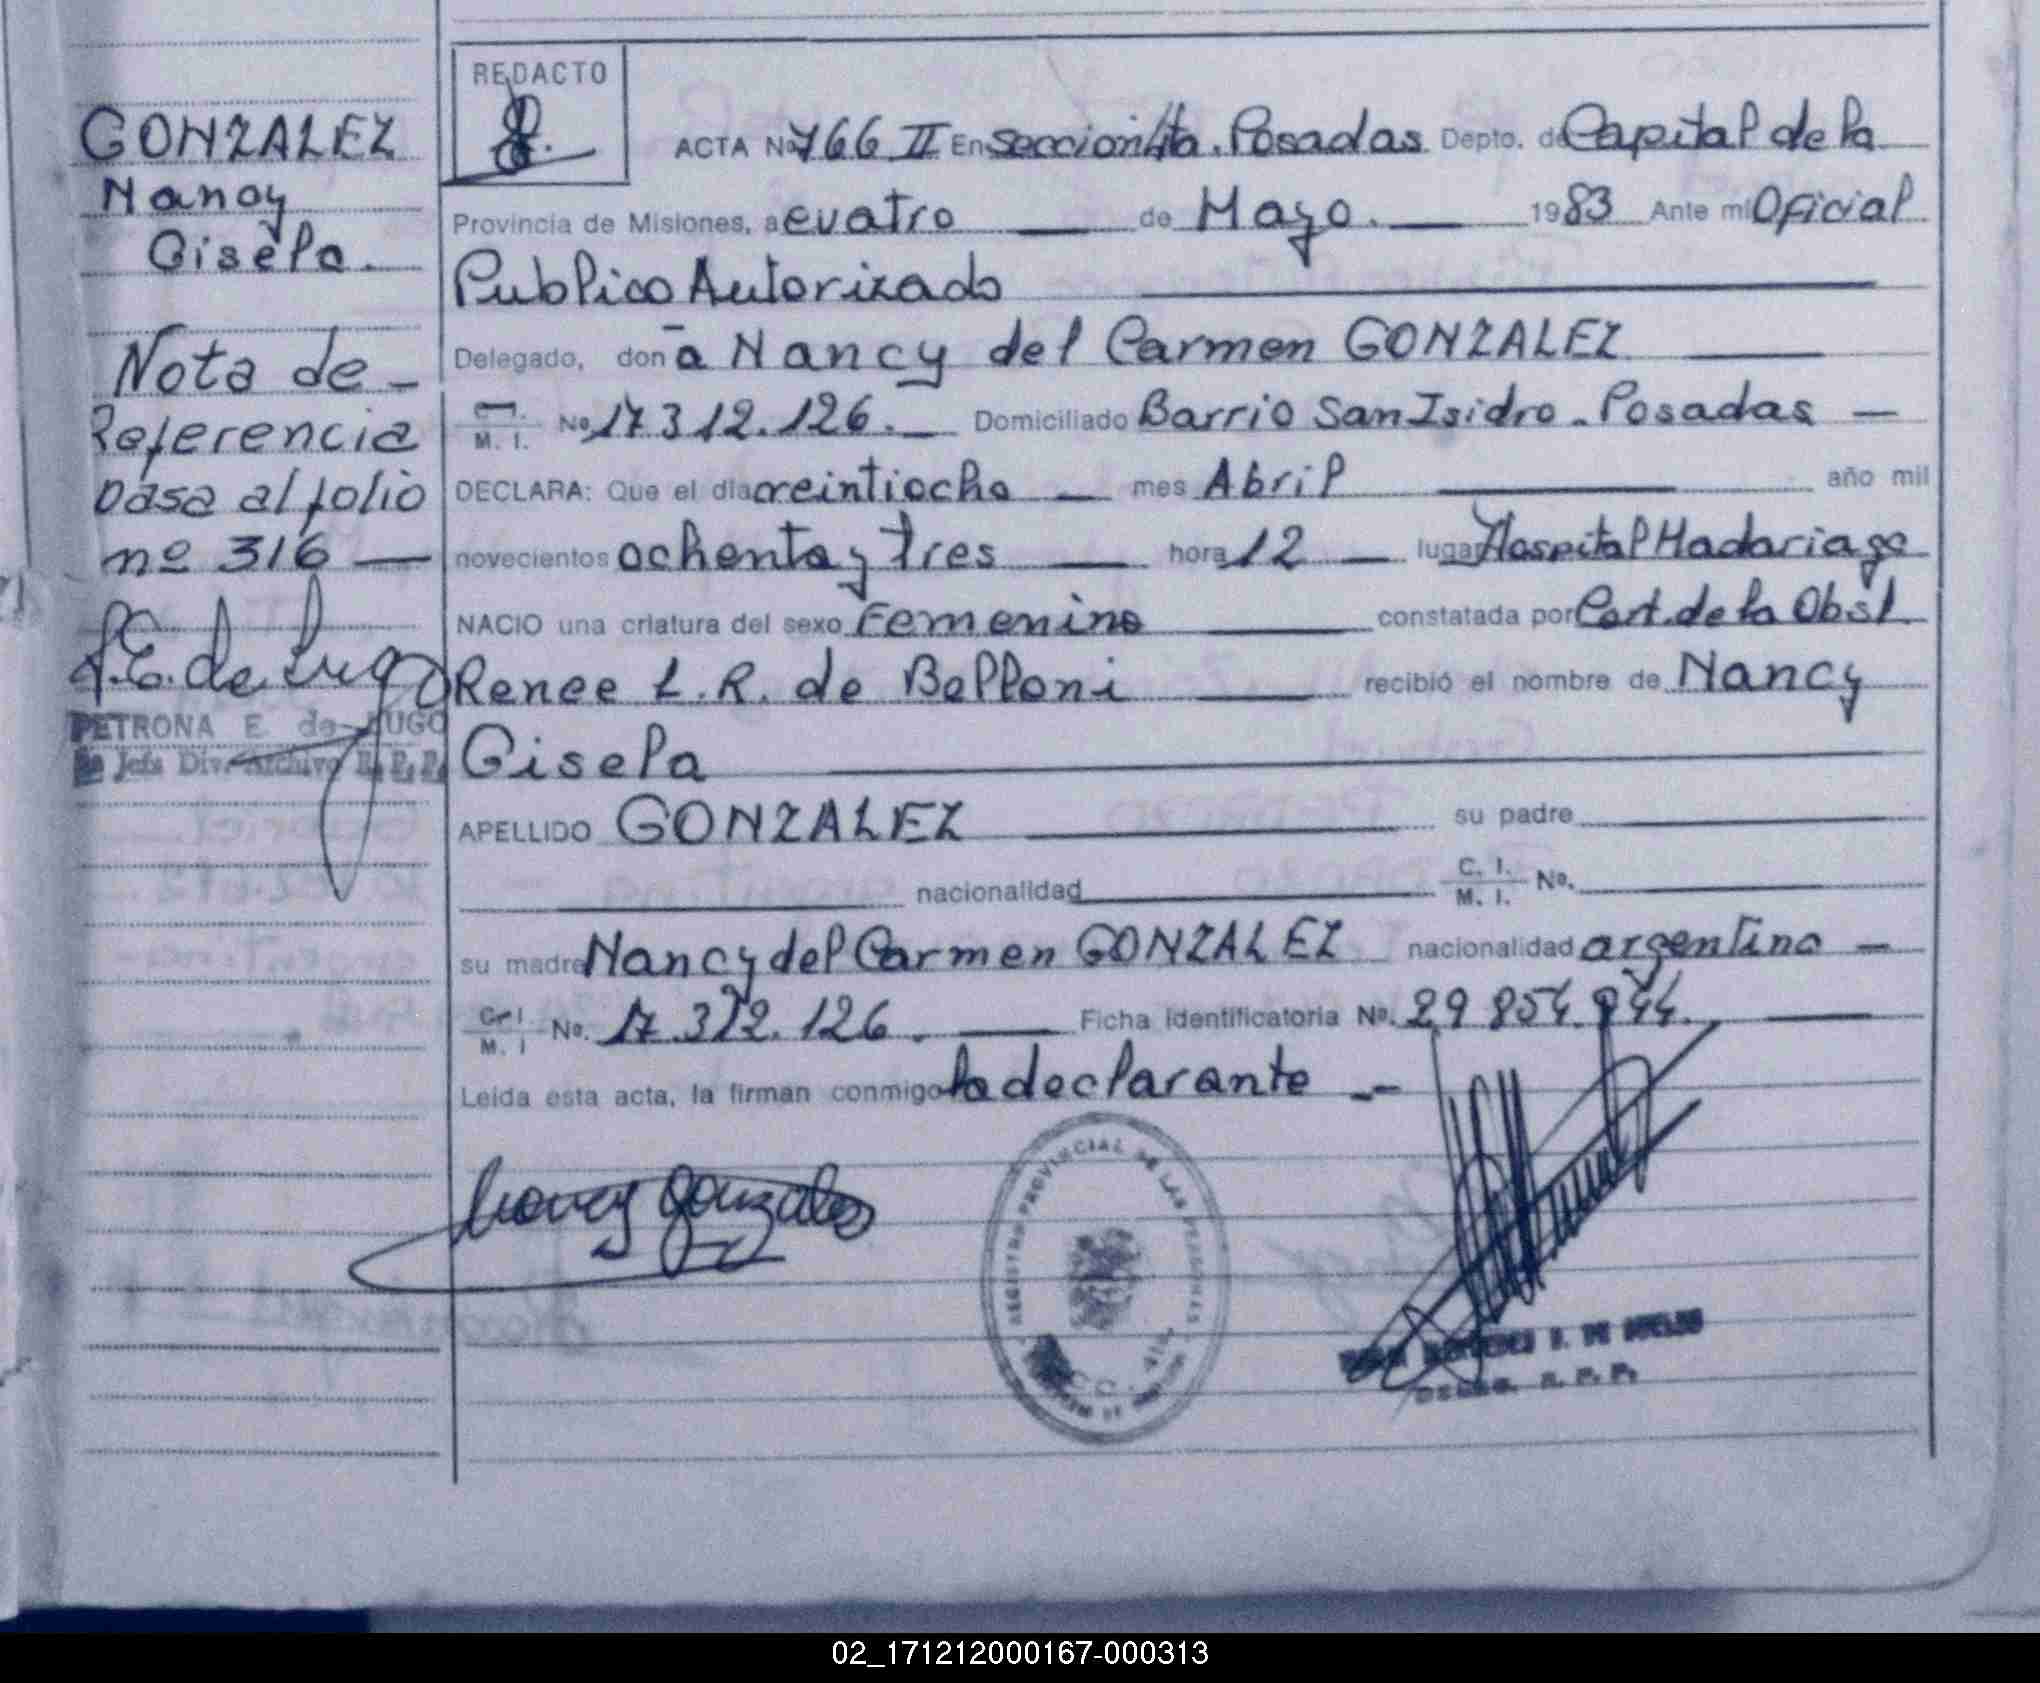 GONZALEZ
Nancy
Gisela.
Nota de
Referencia
pasa al folio
nº 316
P.E. de Lugo
PETRONA E. de LUGO
Jefa Div. Archivo R. P. P.
REDACTO
ACTA Nº 766 II En Seccion 4ta. Posadas Depto. de Capital de la
Provincia de Misiones, a cuatro de Mayo. 1983 Ante mi Oficial
Publico Autorizado
Delegado, don a Nancy del Carmen GONZALEZ
M. I. Nº 17.312.126. Domiciliado Barrio San Isidro. Posadas
DECLARA: Que el día veintiocho mes Abril año mil
novecientos ochenta y tres hora 12 lugar Hospital Madariaga
NACIO una criatura del sexo Femenino constatada por Cert. de la Obst.
Renee L. R. de Belloni recibió el nombre de Nancy
Gisela
APELLIDO GONZALEZ su padre
nacionalidad C. I. M. I. Nº.
su madre Nancy del Carmen GONZALEZ nacionalidad argentina
C. I. M. I Nº. 17.312.126. Ficha Identificatoria Nº. 29.854.944.
Leída esta acta, la firman conmigo la declarante
Nancy Gonzalez
REGISTRO PROVINCIAL DE LAS PERSONAS
R. P. P.
02_171212000167-000313